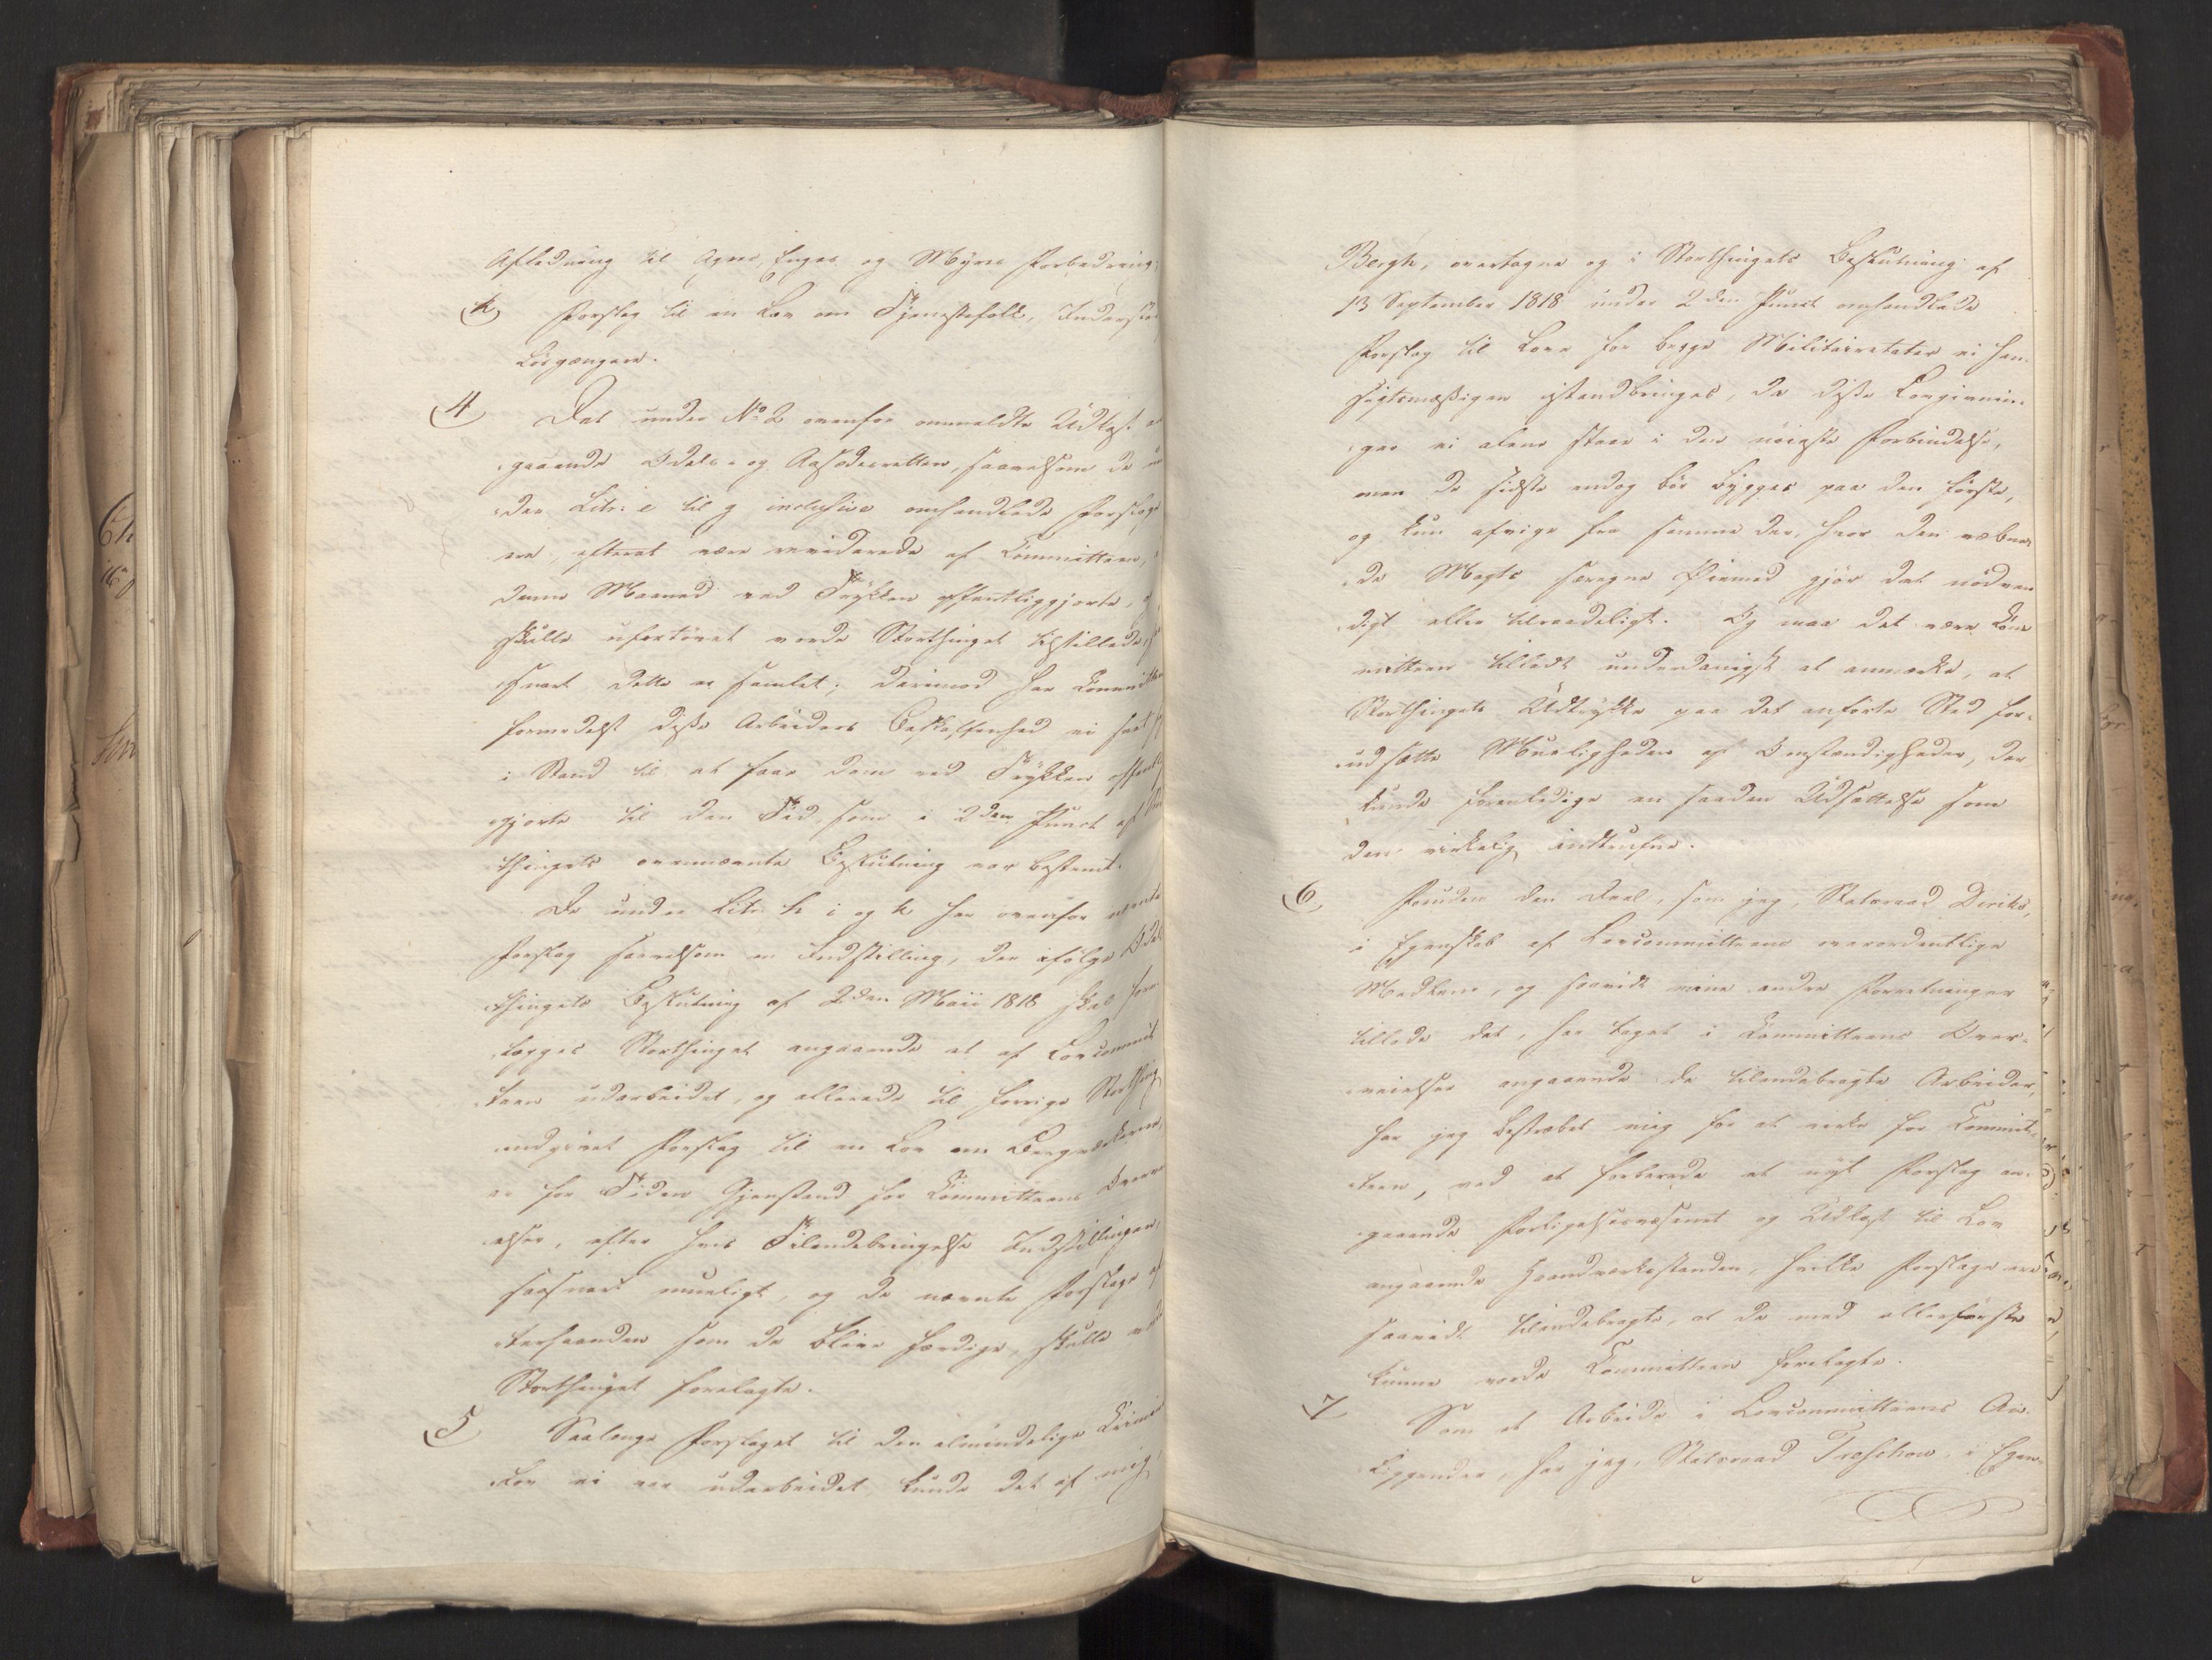 Afledning til Agres, Enges og Myrers Forbedring;
k) Forslag til en Lov om Tjenestefolk, Inderster
Løsgængere.
4) Det under No 2 ovenfor ommeldte Udkast an
gaaende Odels- og Aasædesretten, saavelsom de un
der Litr: e til g inclusive omhandlede Forslage
ere, efterat være reviderede af Committeen, i
denne Maaned ved Trykken offentliggjorte, og
skulle ufortøvet vorde Storthinget tilstillede, saa
snart dette er samlet; derimod har Committeen
formedelst disse Arbeiders Beskaffenhed ei seet sig
i Stand til at faae dem ved Trykken offentlig
gjorte til den Tid, som i 2den Punct af Stor
thingets ovennævnte Beslutning var bestemt.
De under Litr. h i og k her ovenfor nævnte
Forslag saavelsom en Indstilling, der ifølge Odels
thingets Beslutning af 2den Maii 1818 skal fore
lægges Storthinget angaaende et af Lovcommit
teen udarbeidet, og allerede til forrige Storthing
indgivet Forslag til en Lov om Bergværkerne,
er for Tiden Gjenstand for Committeens Overvei
elser, efter hvis Tilendebringelse Indstillingen,
saasnart mueligt, og de nævnte Forslage ef
terhaanden som de blive færdige, skulle vorde
Storthinget forelagte.
5) Saalænge Forslaget til den almindelige Criminal
Lov ei var udarbeidet kunde det af mig,
Bergh, overtagne og i Storthingets Beslutning af
13 September 1818 under 2den Punct omhandlede
Forslag til Love for begge Militairetater ei hen
sigtsmæssigen istandbringes, da disse Lovgivnin
ger ei alene staae i den nøieste Forbindelse,
men de sidste endog bør bygges paa den første,
og kun afvige fra samme der, hvor den væbne
de Magts særegne Øiemed gjør det nødven
digt eller tilraadeligt. Og maa det være Com
mitteen tilladt underdanigst at anmærke, at
Storthingets Udtrykke paa det anførte Sted for
udsætte Mueligheden af Omstændigheder, der
kunde foranledige en saadan Udsættelse som
den virkelig indtrufne.
6) Foruden den Deel, som jeg, Statsraad Diriks,
i Egenskab af Lovcommitteens overordentlige
Medlem, og saavidt mine andre Forretninger
tillode det, har taget i Committeens Over
veielser angaaende de tilendebragte Arbeider,
har jeg bestræbet mig for at virke for Commit
teen, ved at forberede et nyt Forslag an
gaaende Forligelsesvæsenet og Udkast til Lov
angaaende Haandværksstanden, hvilke Forslage ere
saavidt tilendebragte, at de med allerførste
kunne vorde Committeen forelagte.
7) Som et Arbeide i Lovcommitteens An
liggender, har jeg, Statsraad Treschow, i Egen